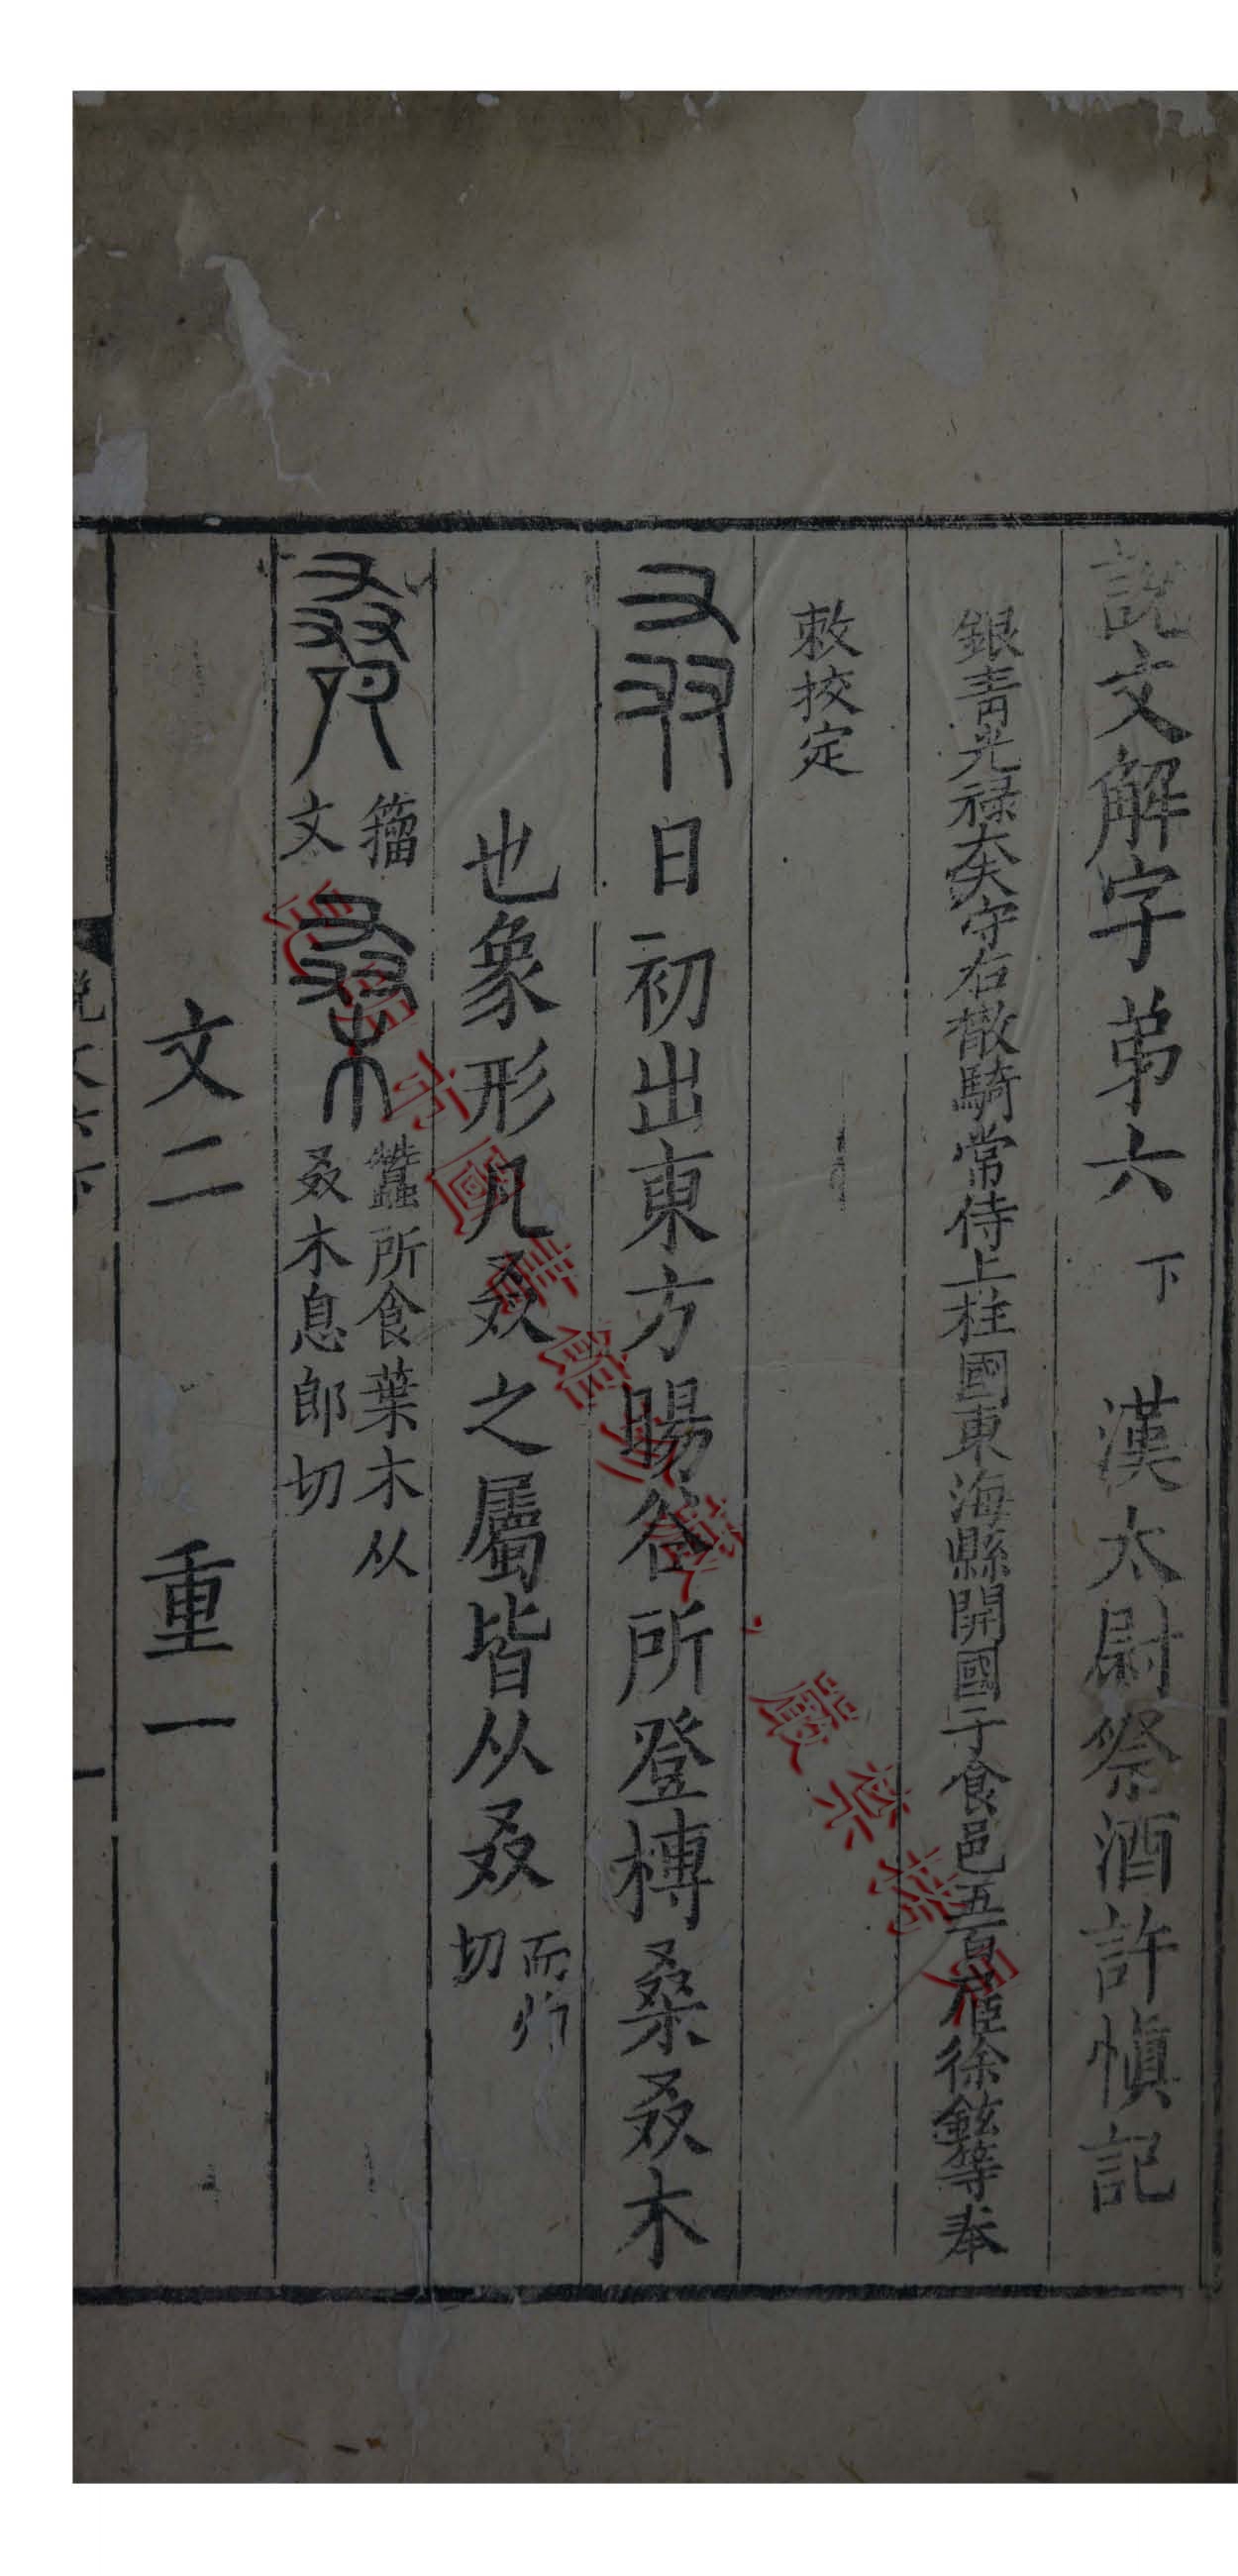 說文解字弟六 下 漢太尉祭酒許慎記
銀青光祿大夫守右散騎常侍上柱國東海縣開國子食邑五百戶臣徐鉉等奉
敕校定
叒 日初出東方暘谷所登榑桑叒木
也象形凡叒之屬皆从叒 而灼切
籀文 桑 蠶所食葉木从叒木息郎切
文二 重一
說文六下 一